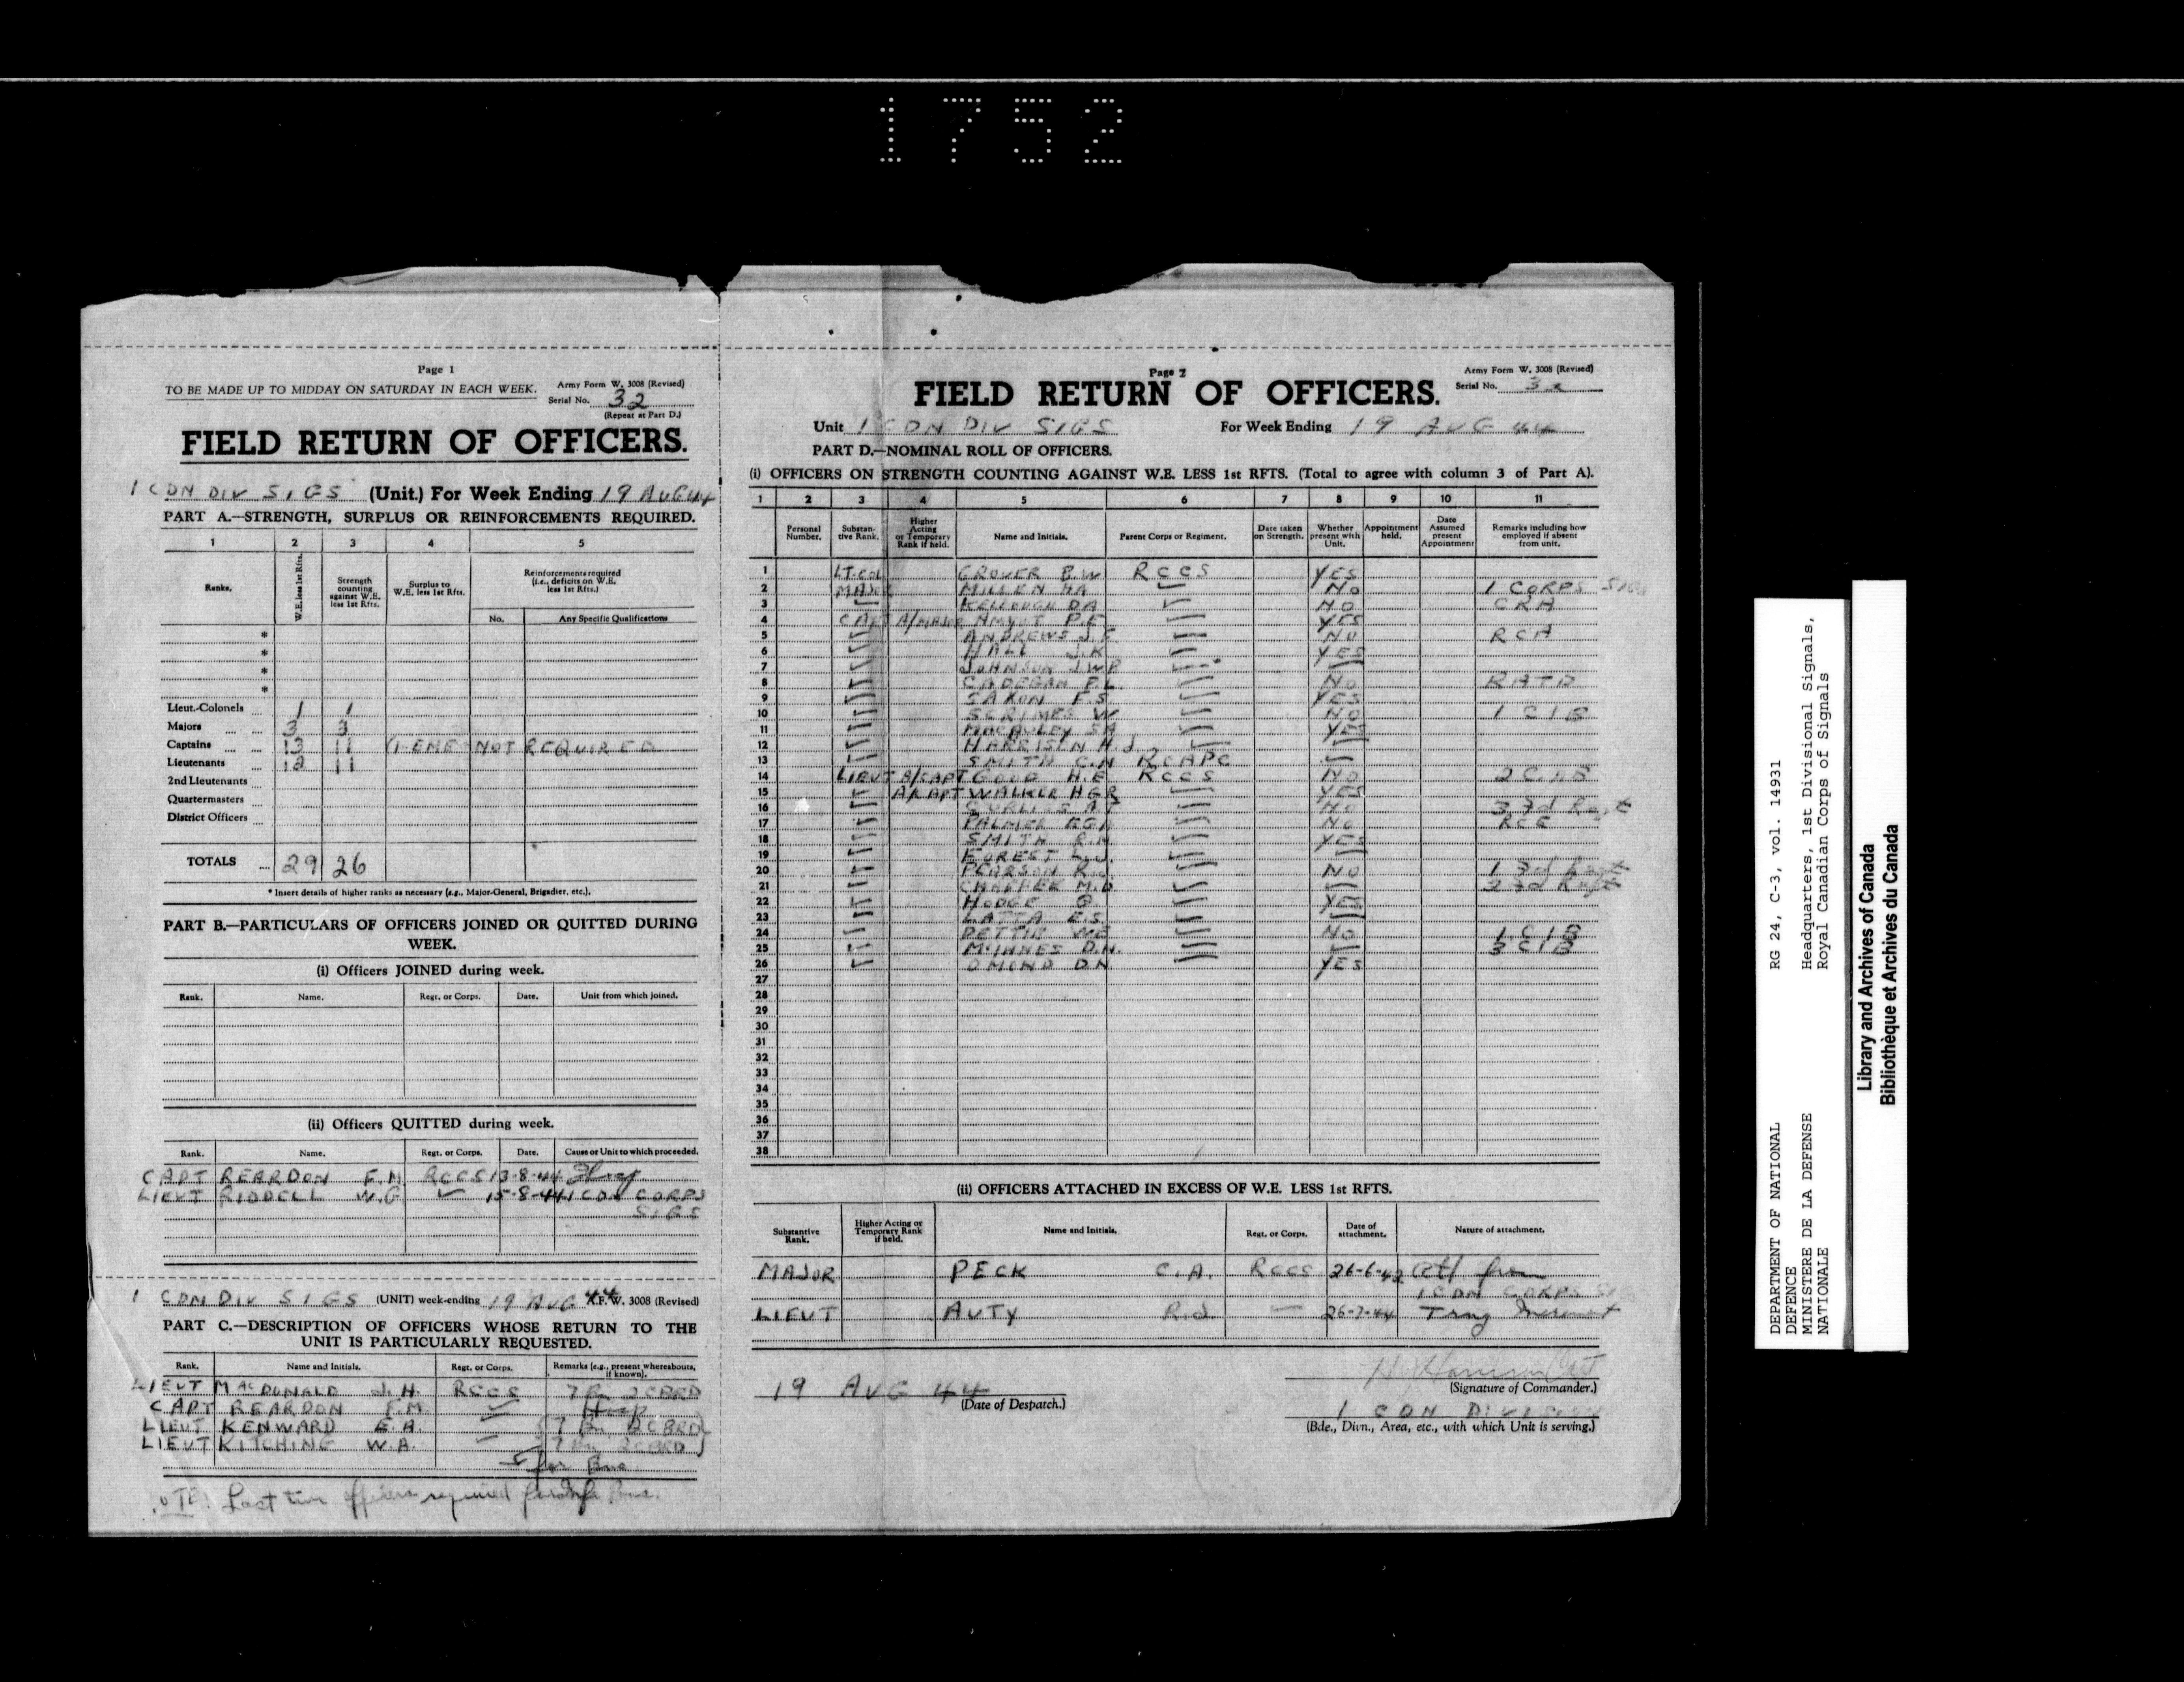 1752
Page 1
TO BE MADE UP TO MIDDAY ON SATURDAY IN EACH WEEK.
Army Form W. 3008 (Revised)
Serial No. 32
(Repeat at Part D.)
FIELD RETURN OF OFFICERS.
1 CDN DIV SIGS (Unit.) For Week Ending 19 AUG 44
PART A.—STRENGTH, SURPLUS OR REINFORCEMENTS REQUIRED.
1 2 3 4 5
Ranks. W.E. less 1st Rfts. Strength counting against W.E. less 1st Rfts. Surplus to W.E. less 1st Rfts. Reinforcements required (i.e., deficits on W.E. less 1st Rfts.)
No. Any Specific Qualifications
*
*
*
*
Lieut.-Colonels 1 1
Majors 3 3
Captains 13 11 (1 EME NOT REQUIRED
Lieutenants 12 11
2nd Lieutenants
Quartermasters
District Officers
TOTALS 29 26
* Insert details of higher ranks as necessary (e.g., Major-General, Brigadier, etc.).
PART B.—PARTICULARS OF OFFICERS JOINED OR QUITTED DURING WEEK.
(i) Officers JOINED during week.
Rank. Name. Regt. or Corps. Date. Unit from which joined.
(ii) Officers QUITTED during week.
Rank. Name. Regt. or Corps. Date. Cause or Unit to which proceeded.
CAPT REARDON F.M RCCS 13-8-44
LIEUT RIDDELL W.G 15-8-44 1 CDN CORPS
SIGS
1 CDN DIV SIGS (UNIT) week-ending 19 AUG 44 A.F.W. 3008 (Revised)
PART C.—DESCRIPTION OF OFFICERS WHOSE RETURN TO THE UNIT IS PARTICULARLY REQUESTED.
Rank. Name and Initials. Regt. or Corps. Remarks (e.g., present whereabouts, if known).
LIEUT MACDONALD J.H. RCCS 7 Bn 2CBRD
CAPT REARDON F.M. Hosp
LIEUT KENWARD E.A. 7 Bn 2CBRD
LIEUT KITCHING W.A. 7 Bn 2CBRD
NOTE: Last two officers required
Page 2
Army Form W. 3008 (Revised)
Serial No. 32
FIELD RETURN OF OFFICERS.
Unit 1 CDN DIV SIGS For Week Ending 19 AUG 44
PART D.—NOMINAL ROLL OF OFFICERS.
(i) OFFICERS ON STRENGTH COUNTING AGAINST W.E. LESS 1st RFTS. (Total to agree with column 3 of Part A).
1 2 3 4 5 6 7 8 9 10 11
Personal Number. Substantive Rank. Higher Acting or Temporary Rank if held. Name and Initials. Parent Corps or Regiment. Date taken on Strength. Whether present with Unit. Appointment held. Date Assumed present Appointment Remarks including how employed if absent from unit.
1 LT-COL GROVER B.W RCCS YES
2 MAJOR MILLEN HA NO 1 CORPS SIGS
3 KELLOUGH DA NO CRA
4 CAPT A/MAJOR AMYOT P.E YES
5 ANDREWS J.F NO RCA
6 HALL J.K YES
7 JOHNSON J.W.P
8 CADEGAN F.L. NO RATD
9 SAXON F.S YES
10 SCRIMES W NO 1 CIB
11 MACAULEY SA YES
12 HARRISON H.J.
13 SMITH C.N RCAPC
14 LIEUT A/CAPT GOOD H.E RCCS NO 2 CIB
15 A/CAPT WALKER HGR YES
16 NO 3 Fd Regt
17 PALMER NO RCE
18 SMITH R.H YES
19 FOREST L.J.
20 PEARSON R.J. NO 1 Fd Regt
21 CHAFFEE M.D 2 Fd Regt
22 HODGE YES
23 LATTA E.S.
24 PETTIE W.E NO 1 CIB
25 McINNES D.H. 3 CIB
26 OMOND D N YES
27
28
29
30
31
32
33
34
35
36
37
38
(ii) OFFICERS ATTACHED IN EXCESS OF W.E. LESS 1st RFTS.
Substantive Rank. Higher Acting or Temporary Rank if held. Name and Initials. Regt. or Corps. Date of attachment. Nature of attachment.
MAJOR PECK C.A. RCCS 26-6-42 att from
1 CDN CORPS SIGS
LIEUT AUTY R.J. 26-7-44 Trng
19 AUG 44
(Date of Despatch.)
(Signature of Commander.)
1 CDN DIVISION
(Bde., Divn., Area, etc., with which Unit is serving.)
DEPARTMENT OF NATIONAL DEFENCE
MINISTERE DE LA DEFENSE NATIONALE
RG 24, C-3, vol. 14931
Headquarters, 1st Divisional Signals,
Royal Canadian Corps of Signals
Library and Archives of Canada
Bibliothèque et Archives du Canada